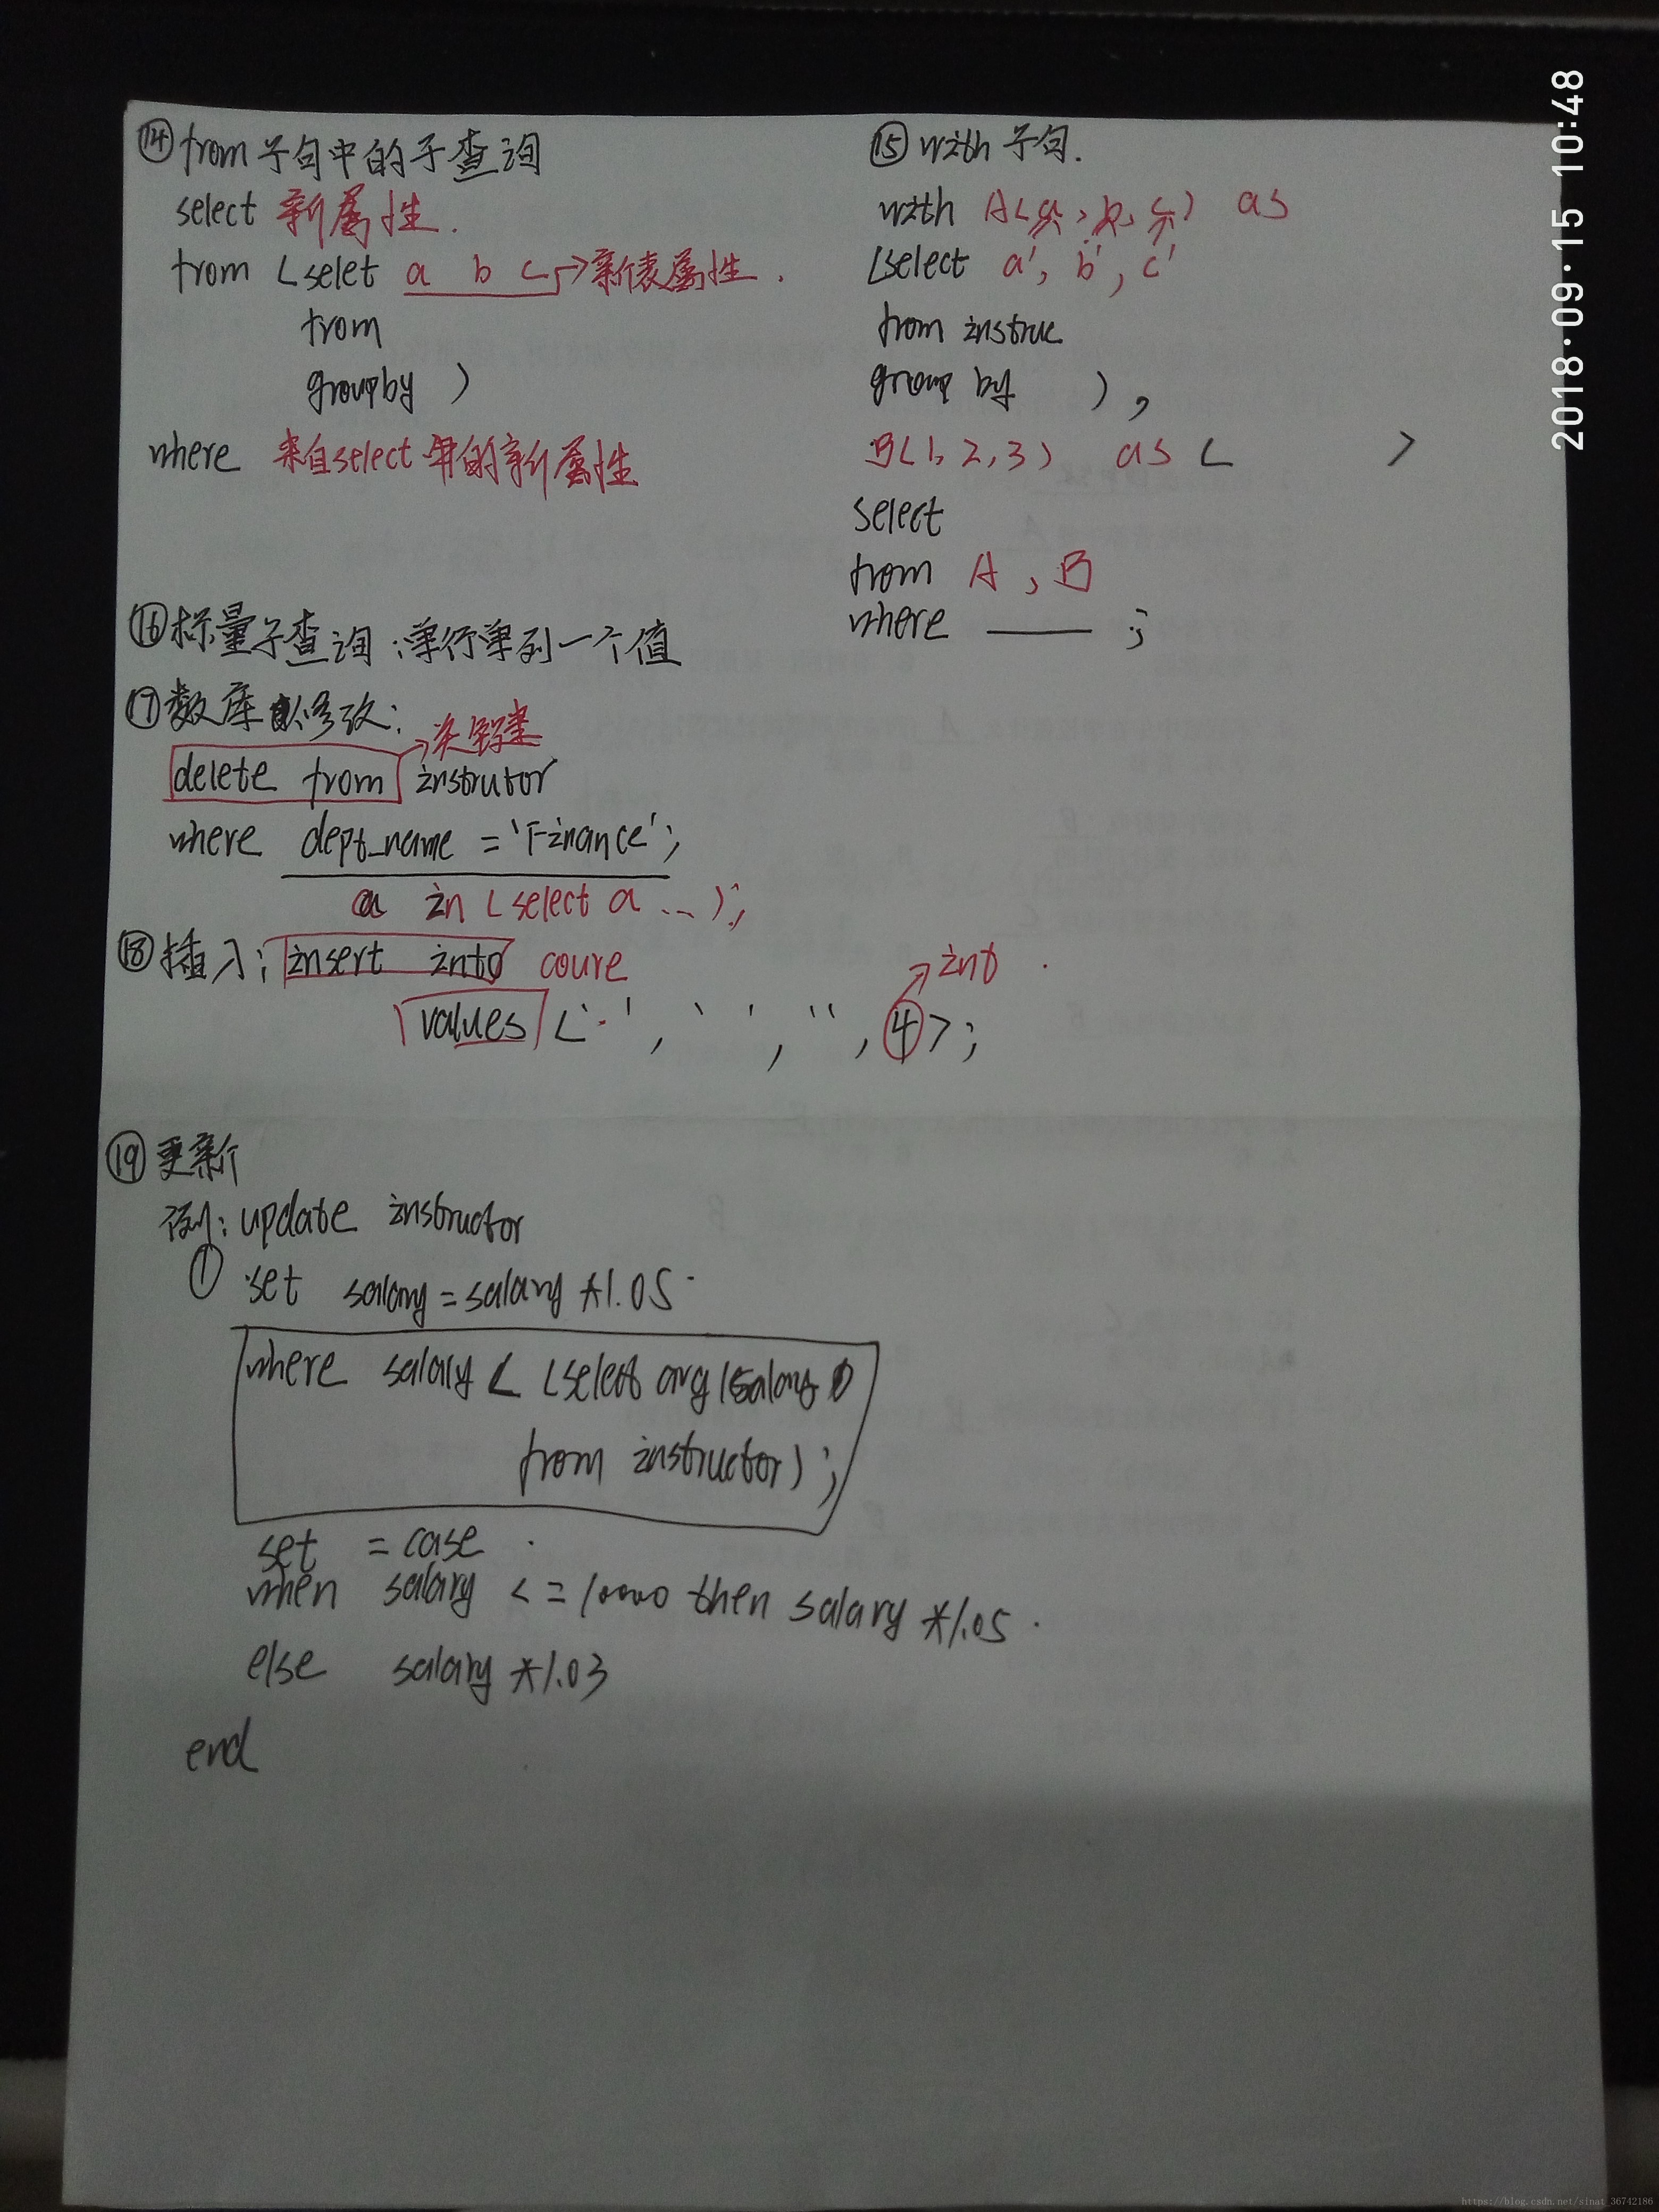 ⑭ from 子句中的子查询
select 新属性.
from (selet a b c →新表属性.
from
groupby )
where 来自select中的新属性
⑮ with 子句.
with A(a, b, c) as
(select a', b', c'
from instruc
group by ),
B(1, 2, 3) as ( )
select
from A , B
where ____ ;
⑯ 标量子查询:单行单列一个值
⑰ 数库 修改:
→关键
delete from instrutor
where dept_name = 'Finance';
a in (select a ...);
⑱ 插入: insert into coure
→int
values (' ', ' ', '', 4);
⑲ 更新
例: update instructor
① set salary = salary *1.05
where salary < (select avg(salary)
from instructor);
set = case
when salary <= 10000 then salary *1.05
else salary *1.03
end
2018·09·15 10:48
https://blog.csdn.net/sinat_36742186